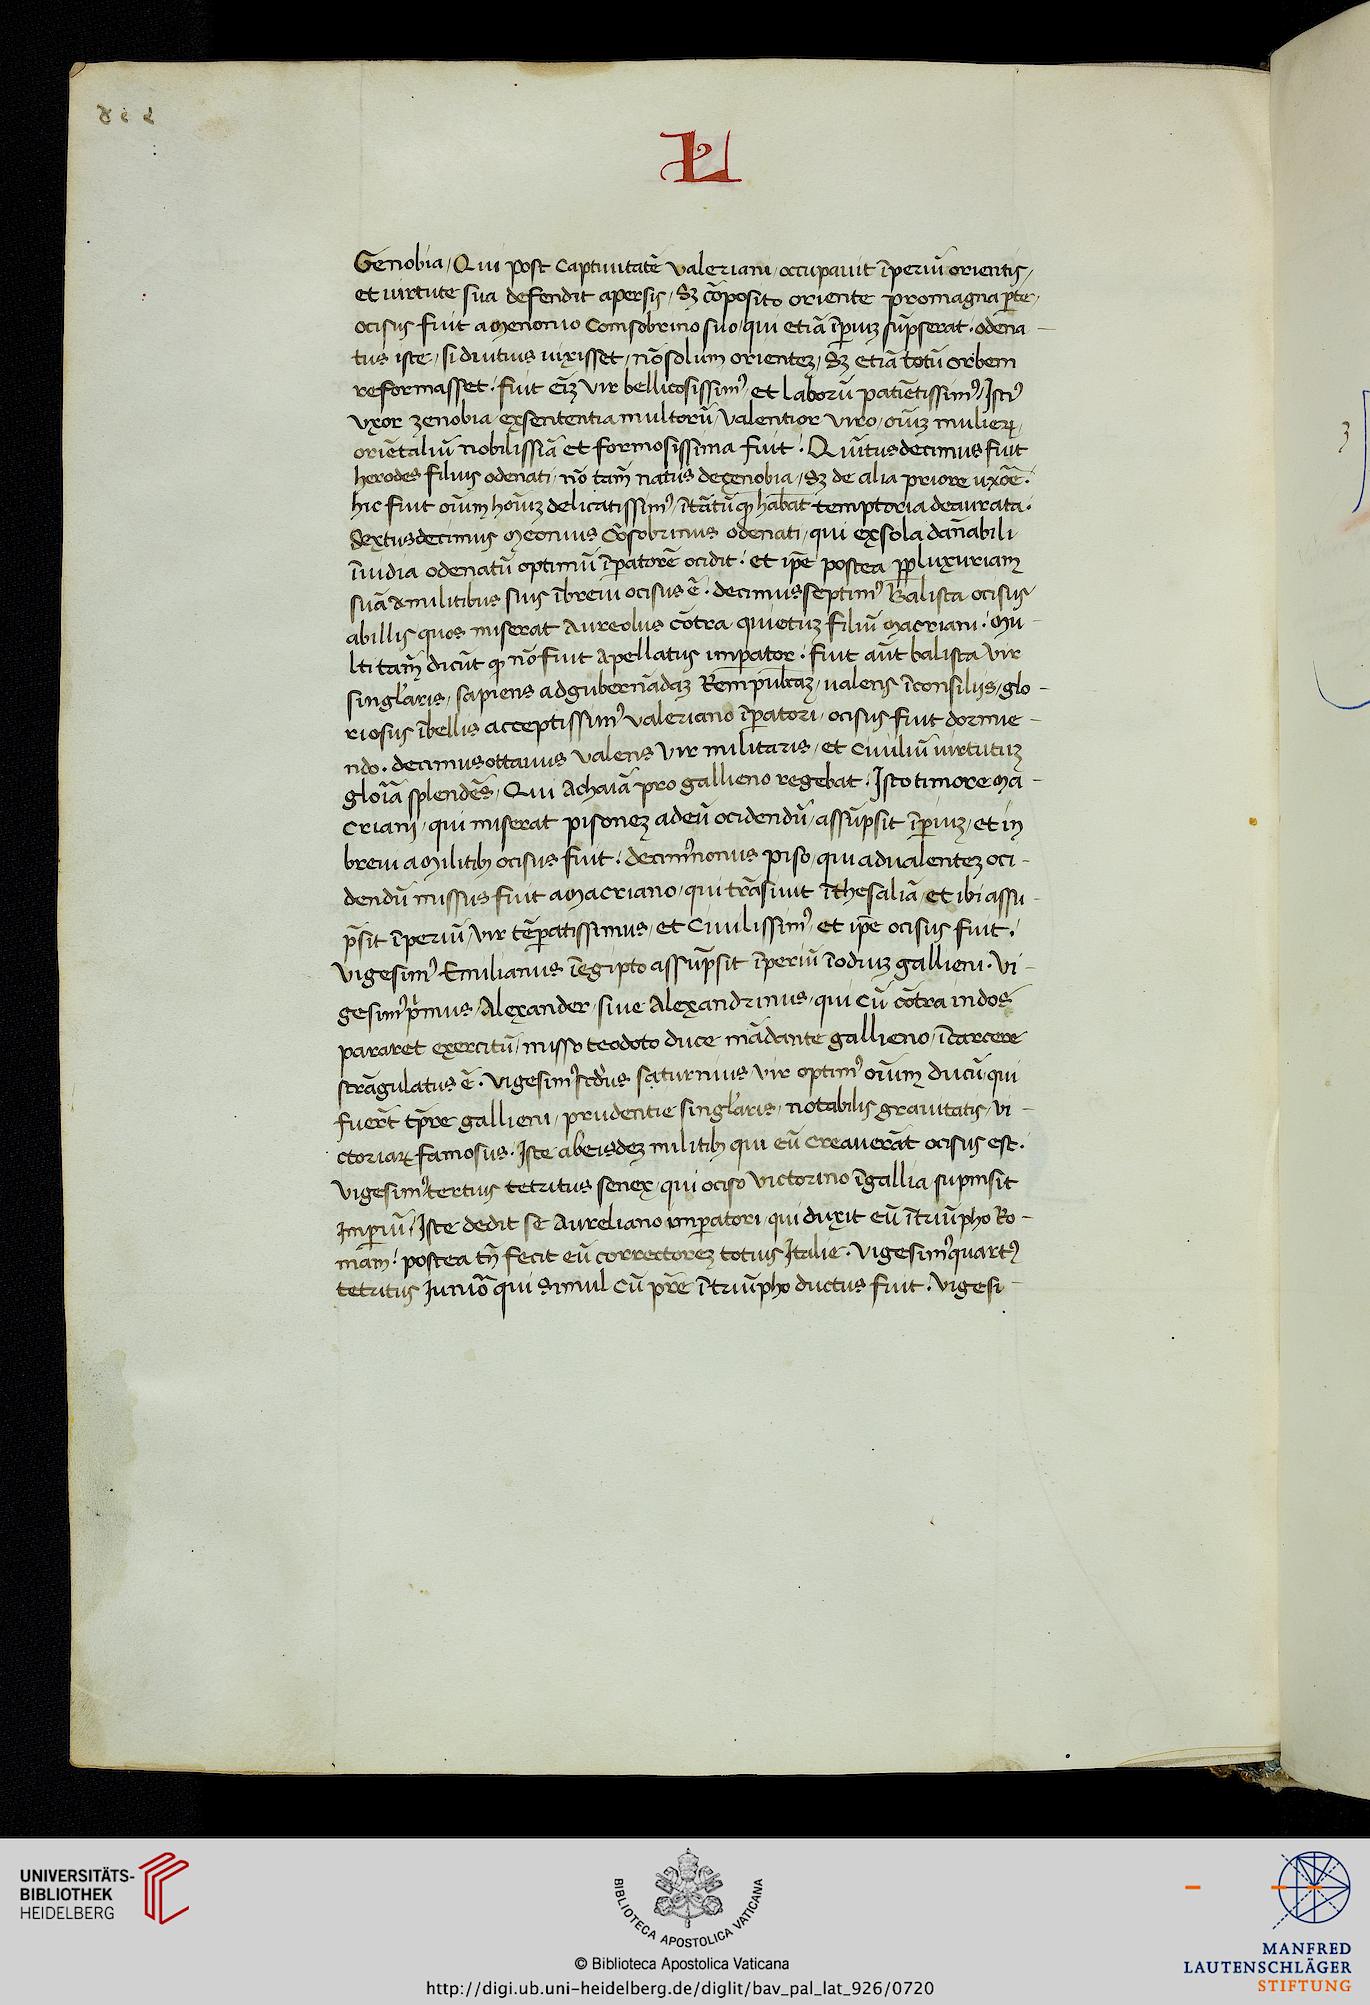 L
Genobia, Qui post captiuitatē valeriani, occupauit īperiū orientis,
et uirtute sua defendit apersis, Sꝫ cōposito oriente promagna ꝑte,
ocisus fuit a Menonio Comsobrino suo, qui etiā īꝑiuꝫ sūpserat. odena-
tus iste, si diutius uixisset, nō solum orienteꝫ, Sꝫ etiā totū orbem
reformasset. fuit eīꝫ vir bellicosissimꝰ et laborū patiētissimꝰ, Istiꝰ
vxor zenobia, exsententia multorū, valentior viro, oīuꝫ mulieꝝ,
oriētaliū nobilissiā et formosissima fuit. Quītusdecimus fuit
herodes filius odenati, nō tam̄ natus dezenobia, Sꝫ de alia priore uxōe.
hic fuit oīum hoīuꝫ delicatissimꝰ, ītātū ꝙ habāt temptoria deaurata.
Sextusdecimus Meonius Cōsobrinus odenati, qui exsola dānabili
īuidia odenatū optimū īꝑatorē ocidit. et ip̄e postea ꝓpluxuriam
suā a militibus suis ībreui ocisus ē. decimusseptimꝰ Balista ocisus
abillis quos miserat Aureolus cōtra quietuꝫ filiū Macriani. Mu-
lti tam̄ dicūt ꝙ nō fuit Apellatus imperator. fuit aūt balista vir
singl'aris, sapiens adgubernādaꝫ Rempublicaꝫ, ualens īconsiliis, glo-
riosus ībellis acceptissimꝰ valeriano īꝑatori, ocisus fuit dormie-
ndo. decimusottauus valens vir militaris, et Ciuiliū uirtutuꝫ
gloīa splendēs, Qui Achaiā pro gallieno regebat. Isto timore Ma-
criani, qui miserat pisoneꝫ adeū ocidendū, assūpsit īꝑiuꝫ, et in
breui a Militibꝫ ocisus fuit. decimꝰnonus piso, qui adualenteꝫ oci-
dendū missus fuit a Macriano, qui trāsiuit īthesaliā, et ibi assu-
p̄sit īperiū, vir tēꝑatissimus, et Ciuilissimꝰ et ip̄e ocisus fuit.
vigesimꝰ Emilianus īegipto assūpsit īperiū īodiuꝫ gallieni. vi-
gesimꝰ p̄mus, Alexander, siue Alexandrinus, qui cū cōtra indos
pararet exercitū, misso teodoto duce mādante gallieno, īcarcere
strāgulatus ē. vigesimꝰ scd'us saturnius, vir optimꝰ oīum ducū, qui
fuer̄t tp̄re gallieni, prudentie singl'aris, notabilis grauitatis, vi-
ctoriaꝝ famosus. Iste abeisdeꝫ militibꝫ qui eū creauerāt ocisus est.
vigesimꝰtertius tetritus senex, qui ociso victorino īgallia supmsit
Imꝑiū. Iste dedit se Aureliano imꝑatori, qui duxit eū ītriūpho Ro-
mam. postea tn̄ fecit eū correctoreꝫ totius Italie. vigesimꝰquartꝰ
tetritus Iuniō qui simul cū pr̄e ītriūpho ductus fuit. vigesi-
UNIVERSITÄTS-
BIBLIOTHEK
HEIDELBERG
BIBLIOTECA APOSTOLICA VATICANA
© Biblioteca Apostolica Vaticana
http://digi.ub.uni-heidelberg.de/diglit/bav_pal_lat_926/0720
MANFRED
LAUTENSCHLÄGER
STIFTUNG